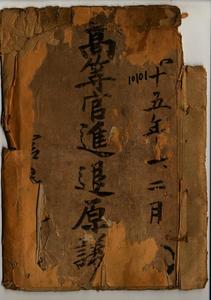 十五年一二月
10101
高等官進退原議